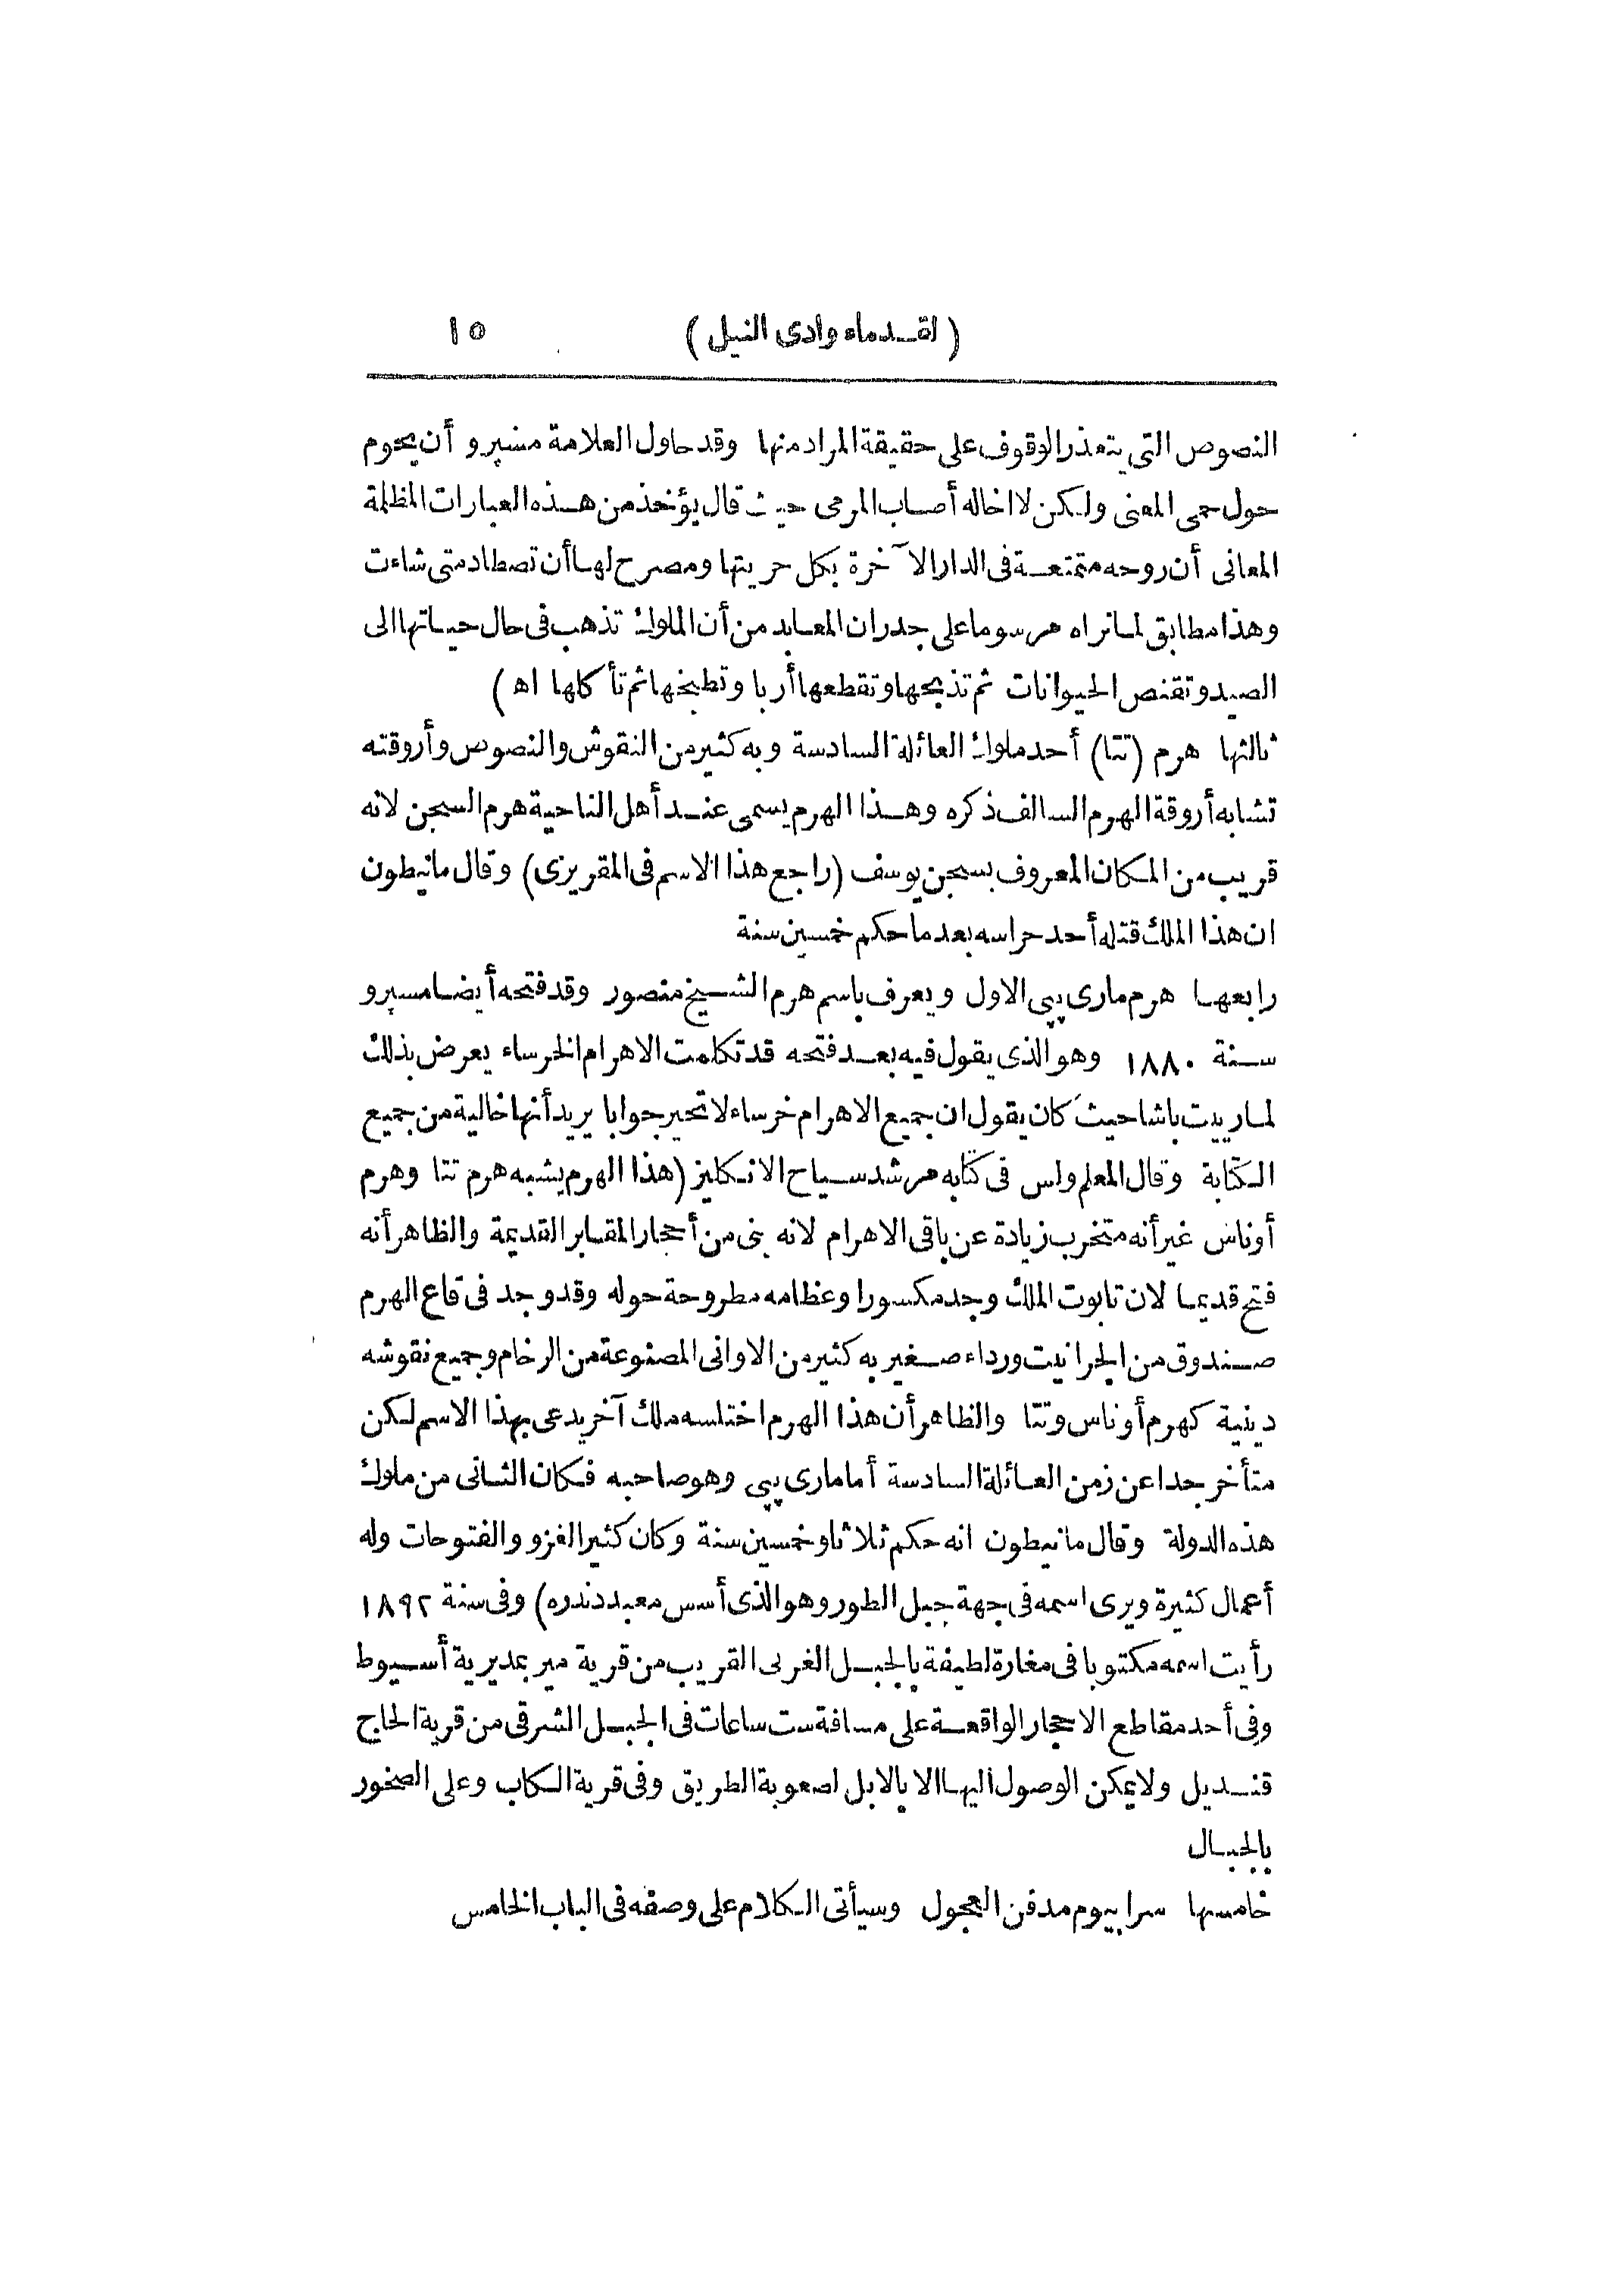 (لقدماء وادى النيل) ١٥
النصوص التى يتعذر الوقوف على حقيقة المراد منها وقد حاول العلامة مسپرو أن يحوم
حول حمى المعنى ولكن لا اخاله أصاب المرمى حيث قال يؤخذ من هذه العبارات المظلمة
المعانى أن روحه متمتعة فى الدار الآخرة بكل حريتها ومصرح لها أن تصطاد متى شاءت
وهذا مطابق لما نراه مرسوما على جدران المعابد من أن الملوك تذهب فى حال حياتها الى
الصيد وتقنص الحيوانات ثم تذبحها وتقطعها أربا وتطبخها ثم تأكلها اه)
ثالثها هرم (تتا) أحد ملوك العائلة السادسة وبه كثير من النقوش والنصوص وأروقته
تشابه أروقة الهرم السالف ذكره وهذا الهرم يسمى عند أهل الناحية هرم السجن لانه
قريب من المكان المعروف بسجن يوسف (راجع هذا الاسم فى المقريزى) وقال مانيطون
ان هذا الملك قتله أحد حراسه بعد ما حكم خمسين سنة
رابعها هرم مارى پپى الاول ويعرف باسم هرم الشيخ منصور وقد فتحه أيضا مسپرو
سنة ١٨٨٠ وهو الذى يقول فيه بعد فتحه قد تكلمت الاهرام الخرساء يعرض بذلك
لمارييت باشا حيث كان يقول ان جميع الاهرام خرساء لا تحير جوابا يريد أنها خالية من جميع
الكتابة وقال المعلم ولس فى كتابه مرشد سياح الانكليز (هذا الهرم يشبه هرم تتا وهرم
أوناس غير أنه متخرب زيادة عن باقى الاهرام لانه بنى من أحجار المقابر القديمة والظاهر أنه
فتح قديما لان تابوت الملك وجد مكسورا وعظامه مطروحة حوله وقد وجد فى قاع الهرم
صندوق من الجرانيت ورداء صغير به كثير من الاوانى المصنوعة من الرخام وجميع نقوشه
دينية كهرم أوناس وتتا والظاهر أن هذا الهرم اختلسه ملك آخر يدعى بهذا الاسم لكن
متأخر جدا عن زمن العائلة السادسة أما مارى پپى وهو صاحبه فكان الثانى من ملوك
هذه الدولة وقال مانيطون انه حكم ثلاثا وخمسين سنة وكان كثير الغزو والفتوحات وله
أعمال كثيرة ويرى اسمه فى جهة جبل الطور وهو الذى أسس معبد دندره) وفى سنة ١٨٩٢
رأيت اسمه مكتوبا فى مغارة لطيفة بالجبل الغربى القريب من قرية مير بمديرية أسيوط
وفى أحد مقاطع الاحجار الواقعة على مسافة ست ساعات فى الجبل الشرقى من قرية الحاج
قنديل ولا يمكن الوصول اليها الا بالابل لصعوبة الطريق وفى قرية الكاب وعلى الصخور
بالجبال
خامسها سرابيوم مدفن العجول وسيأتى الكلام على وصفه فى الباب الخامس